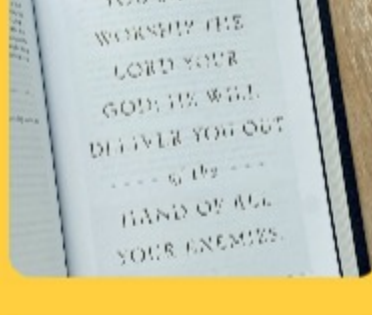 WORSHIP THE
LORD YOUR
GOD; HE WILL
DELIVER YOU OUT
of the
HAND OF ALL
YOUR ENEMIES.